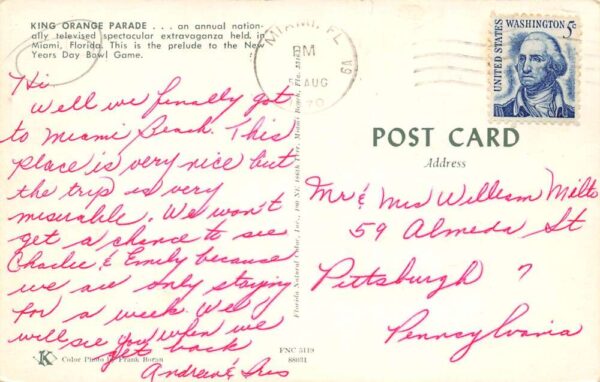 KING ORANGE PARADE . . . an annual nation-
ally televised spectacular extravaganza held in
Miami, Florida. This is the prelude to the New
Years Day Bowl Game.
Hi
Well we finally got
to Miami Beach. This
place is very nice but
the trip is very
miserable. We won't
get a chance to see
Charlie & Emily because
we are only staying
for a week. We
will see you when we
get back
Andrew & Iris
K Color Photo by Frank Boran
FNC 5119
88031
Florida Natural Color, Inc.,
MIAMI, FL
PM
AUG
UNITED STATES
WASHINGTON 5c
POST CARD
Address
Mr & Mrs William Milts
59 Almeda St
Pittsburgh 7
Pennsylvania